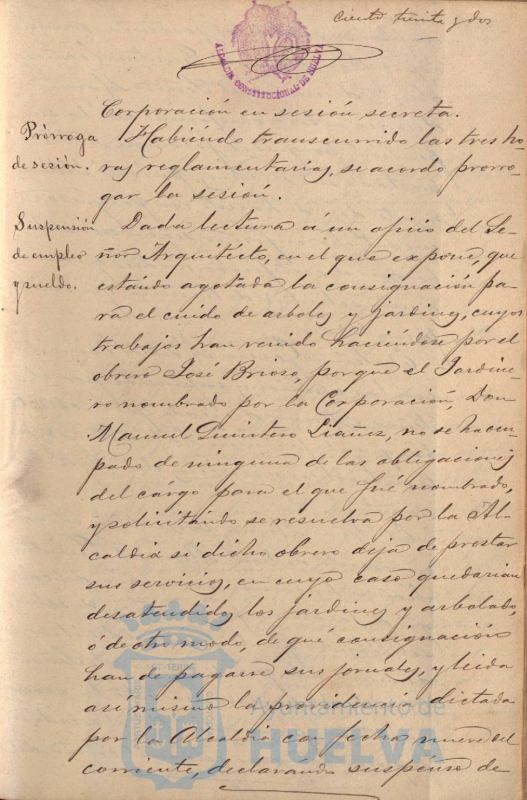 Ciento treinta y dos
ALCALDIA CONSTITUCIONAL DE HUELVA
Corporación en sesión secreta.
Prórroga
de sesión.
Habiéndo transcurrido las tres ho-
ras reglamentarias, se acordó prorro-
gar la sesión.
Suspensión
de empleo
y sueldo.
Dada lectura á un oficio del Se-
ñor Arquitecto, en el que expone, que
estándo agotada la consignación pa-
ra el cuido de arboles y jardines, cuyos
trabajos han venido haciéndose por el
obrero José Brioso, porque el Jardine-
ro nombrado por la Corporación, Don
Manuel Quintero Liañez, no se ha ocu-
pado de ninguna de las obligaciones
del cárgo para el que fué nombrado,
y solicitándo se resuelva por la Al-
caldia si dicho obrero deja de prestar
sus servicios, en cuyo caso quedarian
desatendidos los jardines y arbolado,
ó de otro modo, de qué consignación
han de pagarse sus jornales, y leida
asi mismo la providencia dictada
por la Alcaldia con fecha nueve del
corriente, declarándo suspenso de
Ayuntamiento de
HUELVA